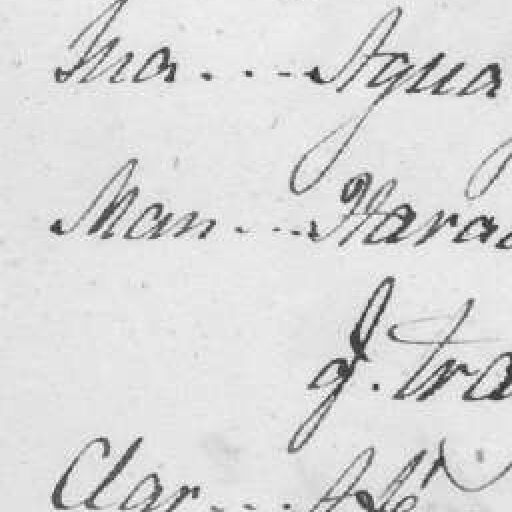 Ina....Agua
Man....Narac
q. tra
Clar....